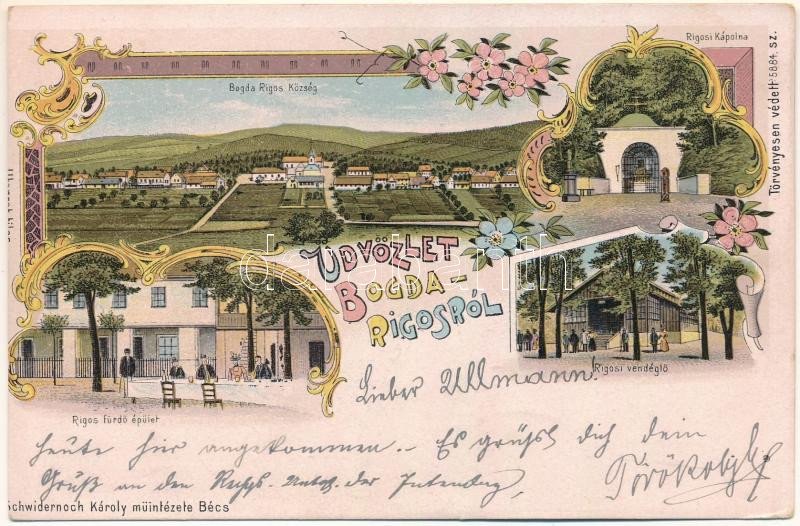 Rigosi Kápolna
Bogda Rigos Község
Törvényesen védett 5884 sz.
ÜDVÖZLET
BOGDA-
RIGOSRÓL
darabanth
Rigosi vendéglő
Rigos fürdő épület
Lieber Ullmann!
heute hier angekommen. – Es grüßt dich dein
Gruß an den der
Schwidernoch Károly müintézete Bécs